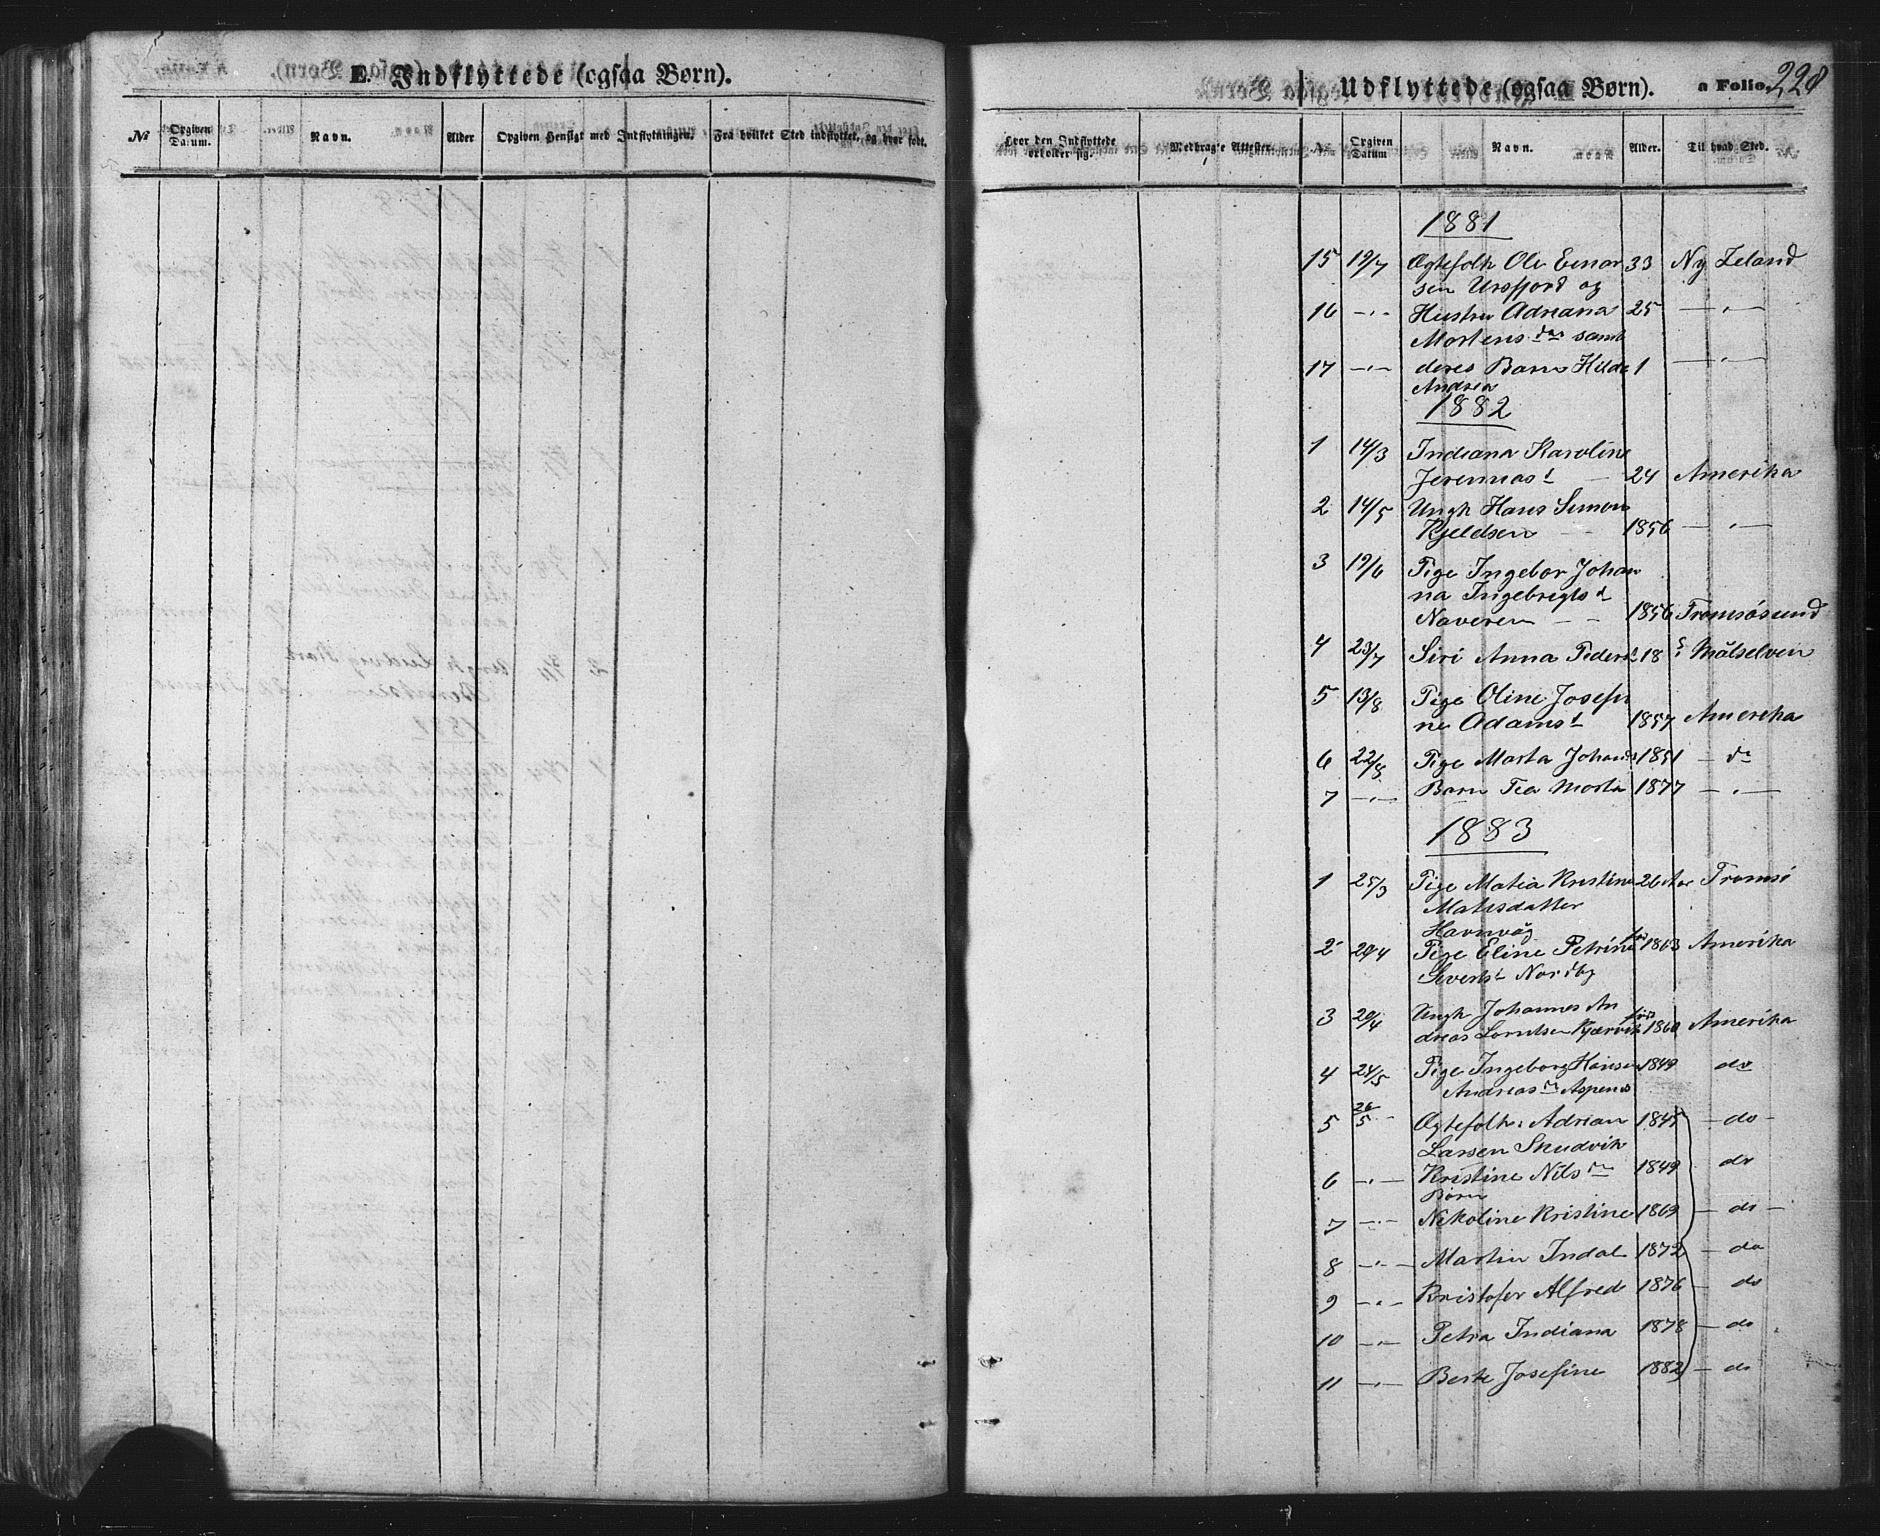 E. Indflyttede (ogsaa Børn).
№ Opgiven Datum. Navn. Alder Opgiven Hensigt med Indflytningen. Fra hvilket Sted indflyttet, og hvor født.
Udflyttede (ogsaa Børn). a Folio. 228
Hvor den Indflyttede opholder sig. Medbragte Attester. № Opgiven Datum Navn. Alder. Til hvad Sted.
1881
15 19/7 Ægtefolk Ole Einar 33 Ny Zeland
sen Ursfjord og
16 —〃— Hustru Adriana 25 —〃—
Mortensdtr samt
17 —〃— deres Barn Hilda 1 —〃—
Andrea
1882
1 14/3 Indiana Karoline
Jeremiasd — 24 Amerika
2 14/5 Ungk Hans Simon
Kjeldsen — 1856 —〃—
3 19/6 Pige Ingebor Johan
na Ingebrigtsd
Naveren — — 1856 Tromsøsund
4 23/7 Siri Anna Pedersd 18 Målselven
5 13/8 Pige Oline Josefi
ne Adamsd 1857 Amerika
6 22/8 Pige Marta Johans 1851 — do
7 —〃— Barn Tea Marta 1877 —〃—
1883
1 25/3 Pige Matia Kristine 26 Aar Tromsø
Matisdatter
Havnvåg
2 29/4 Pige Eline Petrine fød 1863 Amerika
Sivertsd Nordby
3 29/4 Ungk Johannes An
dreas Lorntsen Kjærvik fød 1860 Amerika
4 24/5 Pige Ingeborg Hansine 1849 do
Andreasdtr Aspenes
5 26/5 Ægtefolk: Adrian 1845 — do —
Larsen Skudvik
6 —〃— Kristine Nilsdtr 1849 do
Børn
7 —〃— Nikoline Kristine 1869 — do —
8 —〃— Martin Indal 1872 — do
9 —〃— Kristofer Alfred 1876 — do
10 —〃— Petra Indiana 1878 — do
11 —〃— Berte Josefine 1882 — do